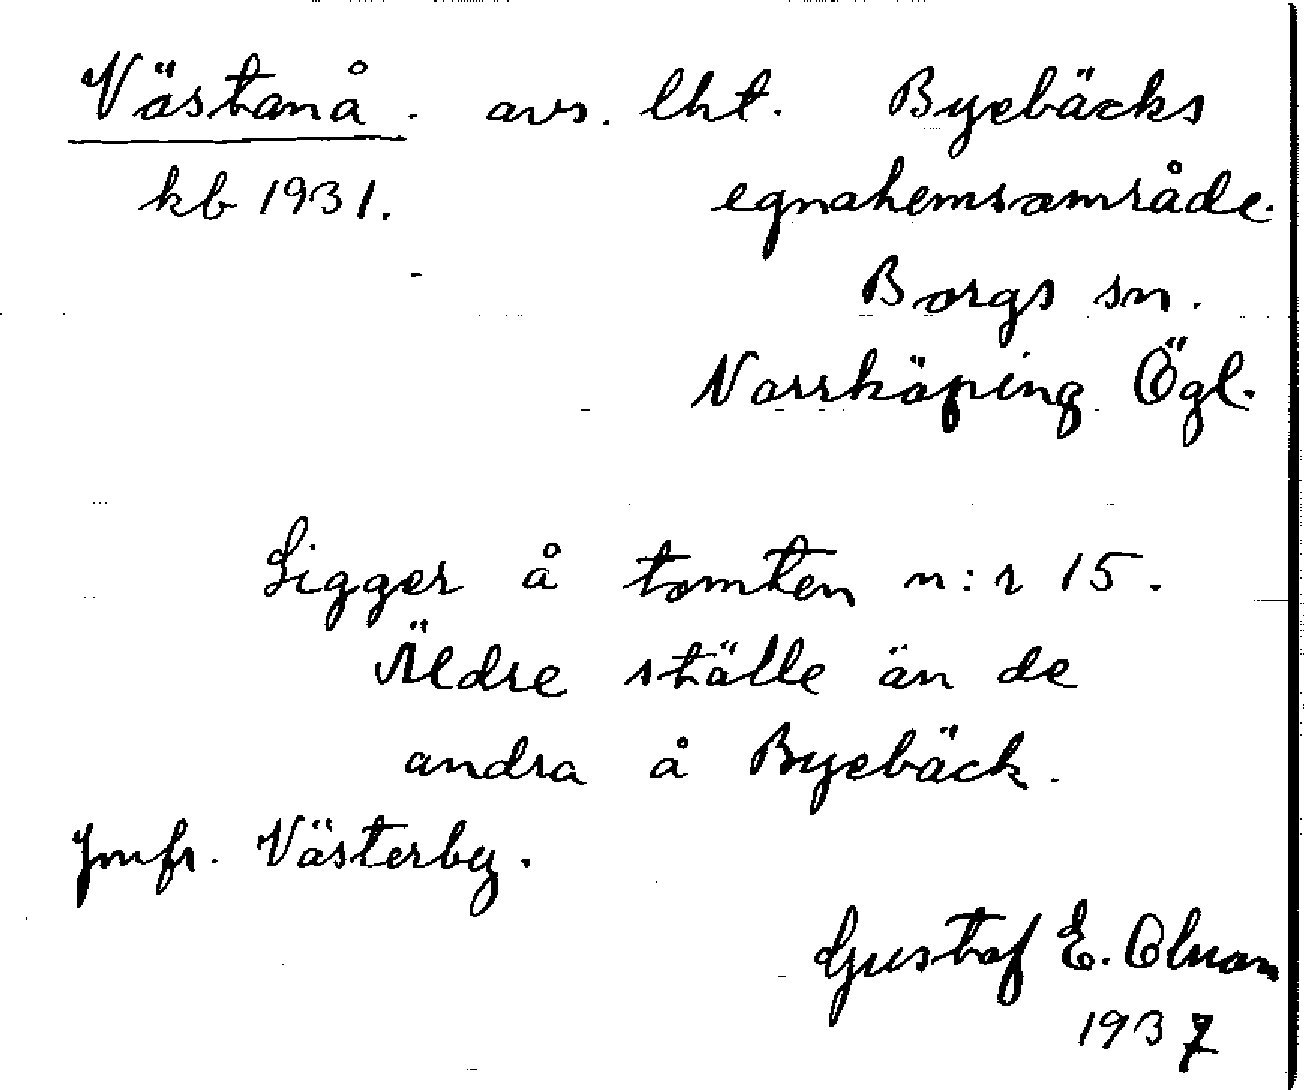 Västanå. avs. lht. Byebäcks
kb 1931. egnahemsområde.
Borgs sn.
Norrköping Ögl.
Ligger å tomten n:r 15.
Äldre ställe än de
andra å Byebäck.
Jmfr. Västerby.
Gustaf E. Olsson
1937